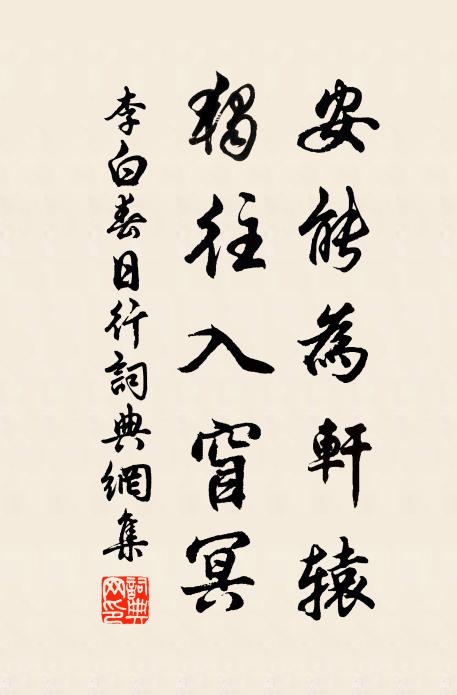 安能為軒辕
獨往入窅冥
李白春日行詞典網集
詞典网印